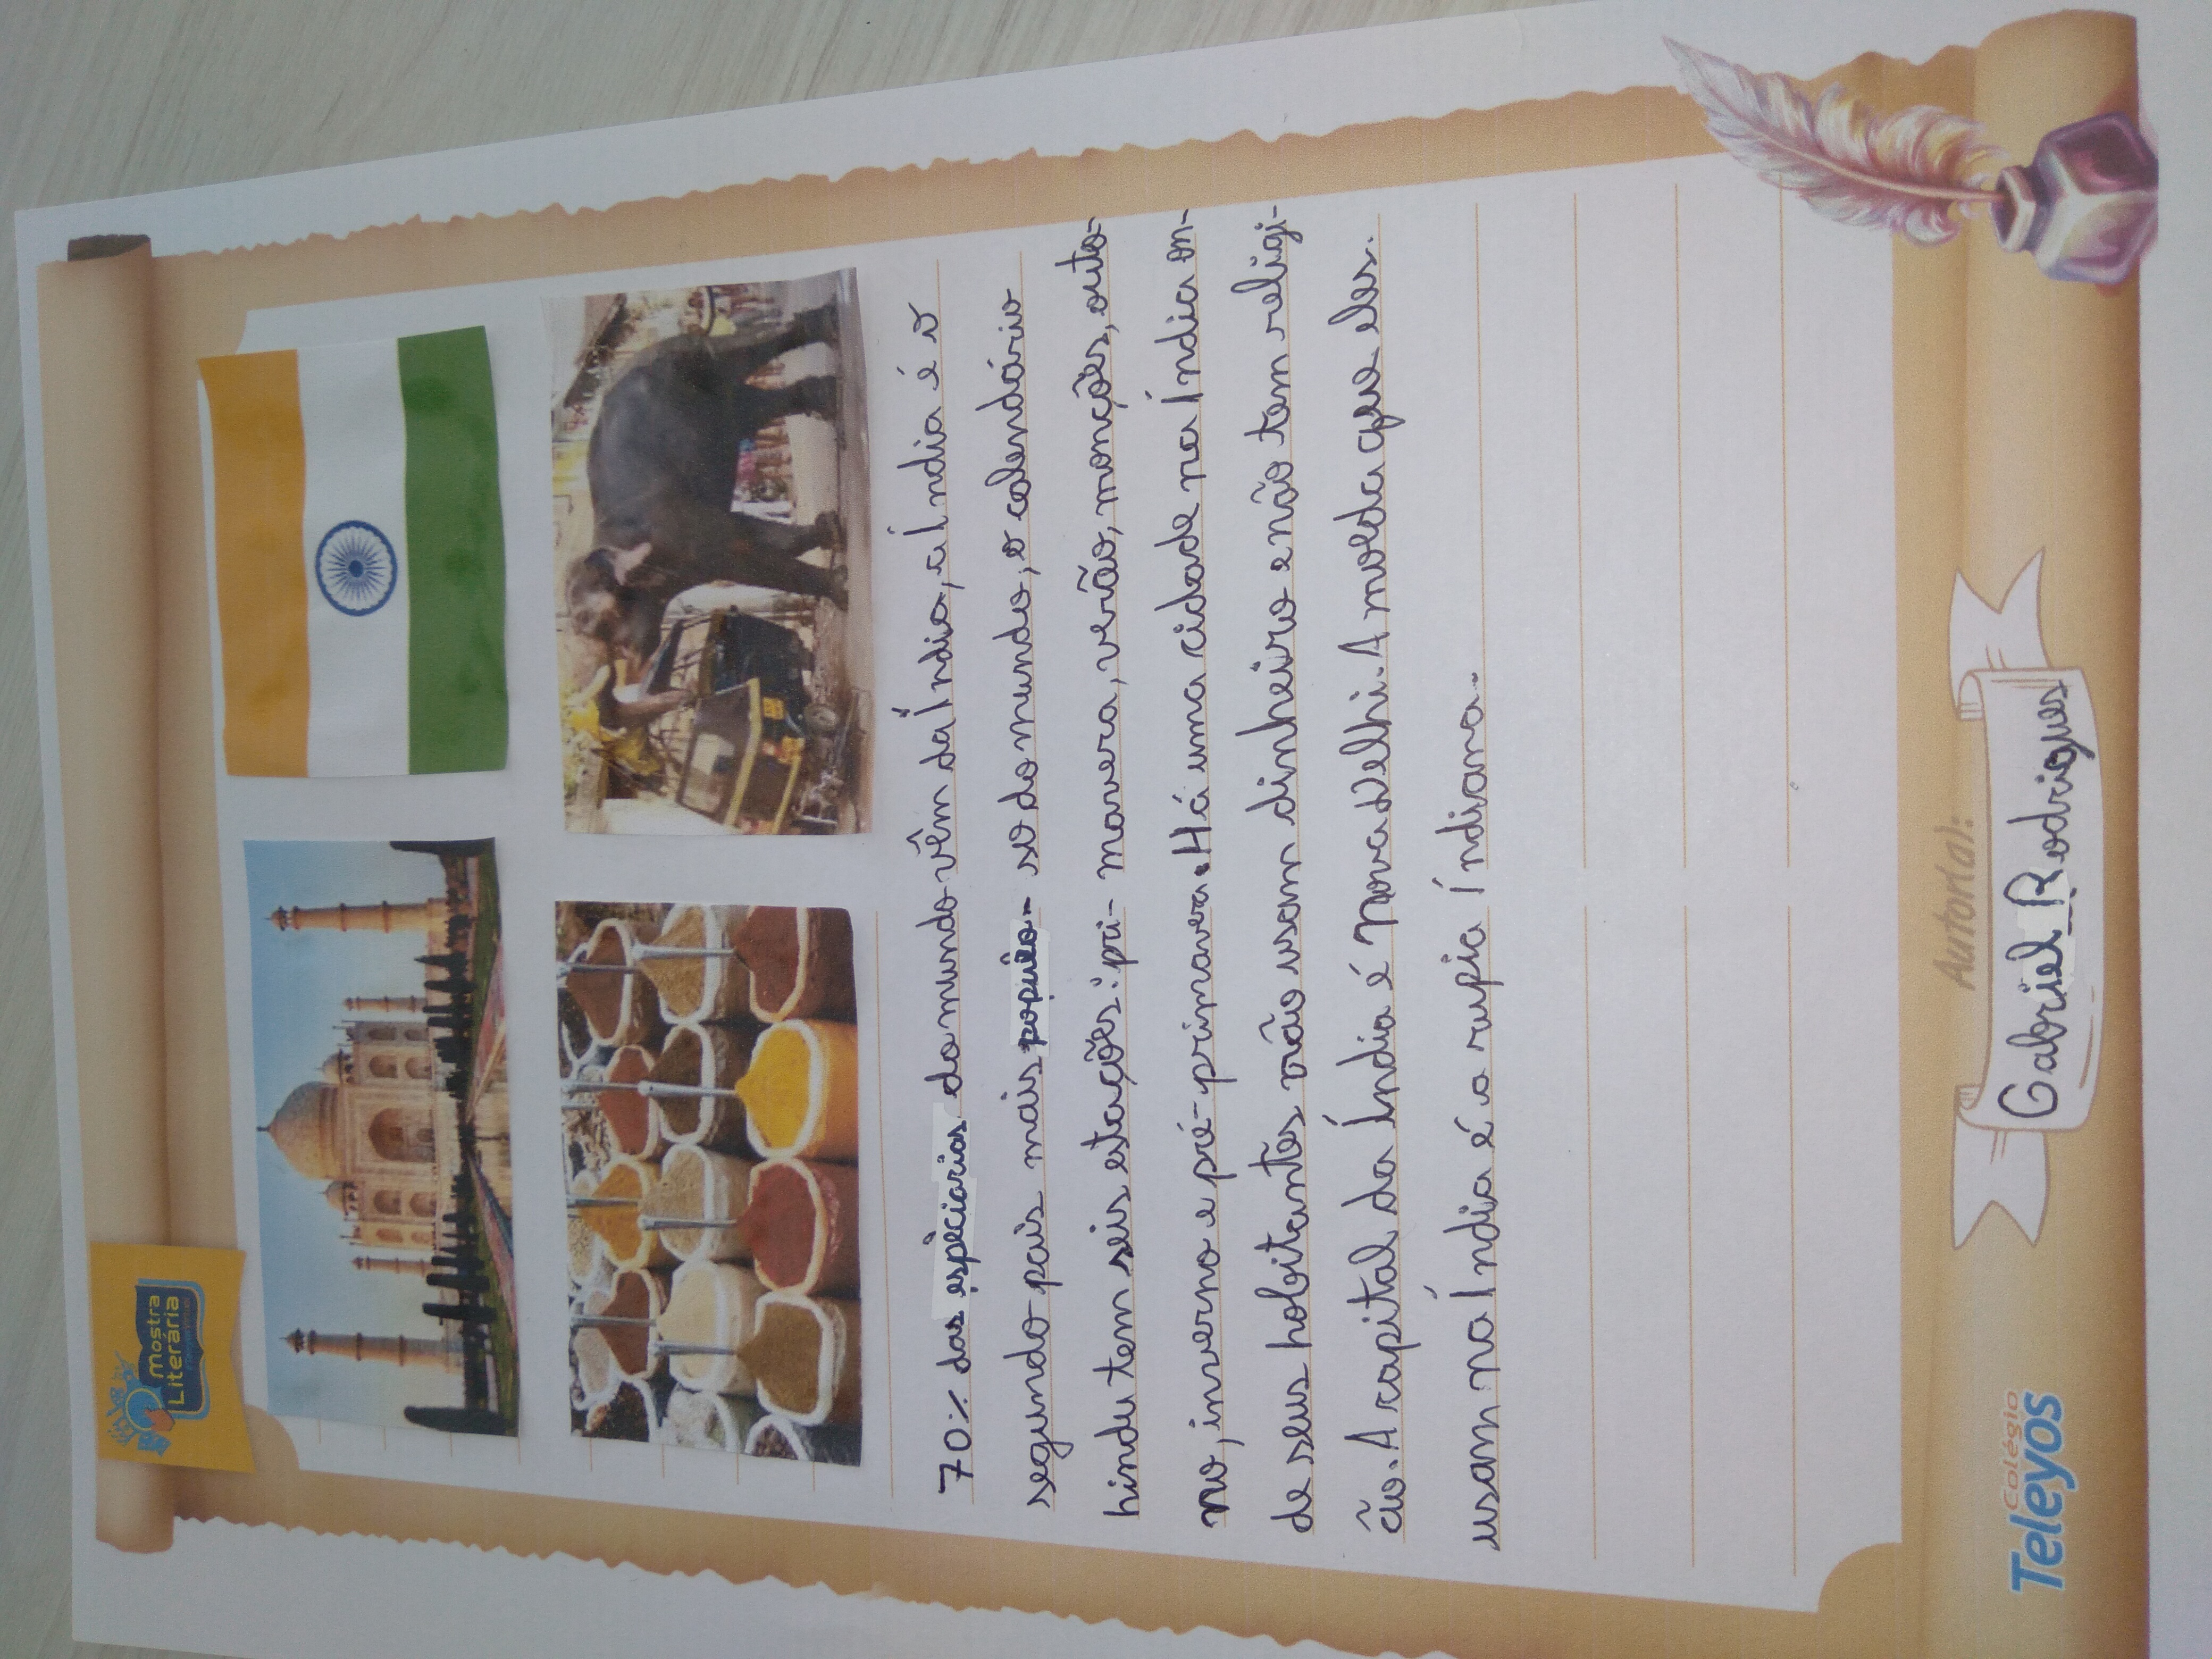 Mostra
Literária
70% das especiarias do mundo vêm da Índia, a Índia é o
segundo pais mais populo-so do mundo, o calendário
hindu tem seis estações: pri-mavera, verão, monções, outo-
no, inverno e pré-primavera. Há uma cidade na Índia on-
de seus habitantes não usam dinheiro e não tem religi-
ão. A capital da Índia é Nova Delhi. A moeda que eles
usam na Índia é a rupia Índiana.
Autor(a):
Gabriel Rodrigues
Colégio
Teleyos